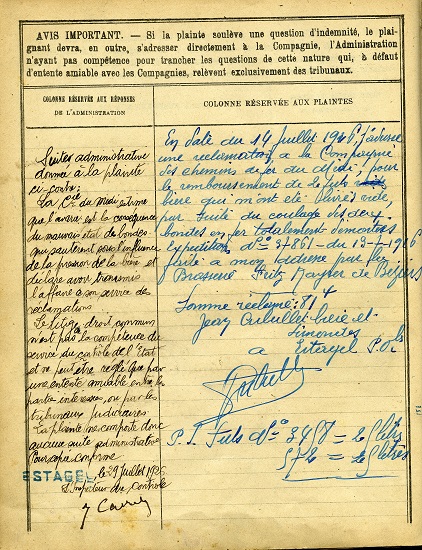 AVIS IMPORTANT. — Si la plainte soulève une question d'indemnité, le plai-
gnant devra, en outre, s'adresser directement à la Compagnie, l'Administration
n'ayant pas compétence pour trancher les questions de cette nature qui, à défaut
d'entente amiable avec les Compagnies, relèvent exclusivement des tribunaux.
COLONNE RÉSERVÉE AUX RÉPONSES
DE L'ADMINISTRATION
Suites administrative
donnée à la plainte
ci-contre:
La Cie du Midi
que l'avarie est la conséquence
du mauvais état des bondes
qui sautèrent sous l'influence
de la pression de la bière et
déclare avoir transmis
l'affaire à son service des
reclamations.
Le litige droit commun
n'est pas de la compétence du
service du contrôle de l'Etat
et ne peut être réglé que par
une entente amiable entre les
parties interessées, ou par les
tribunaux judiciaires
La plainte ne comporte donc
aucune suite administrative
Pour copie conforme
ESTAGEL le 29 Juillet 1926
L'Inspecteur du Contrôle
COLONNE RÉSERVÉE AUX PLAINTES
En date du 14 juillet 1926, j'adresse
une reclamation, a la Compagnie
des chemins de fer du Midi, pour
le remboursement de 2 futs
bière qui m'ont été livrés vide,
par suite du coulage des deux
bondes en fer totalement démontées
Expedition No 37861 du 13-7-1926
faite a mon addresse par les
Brasserie Fritz de Béziers
Somme reclamée:
Jean bière et
Limonades
a Estagel P. Ols
P. S. Futs No